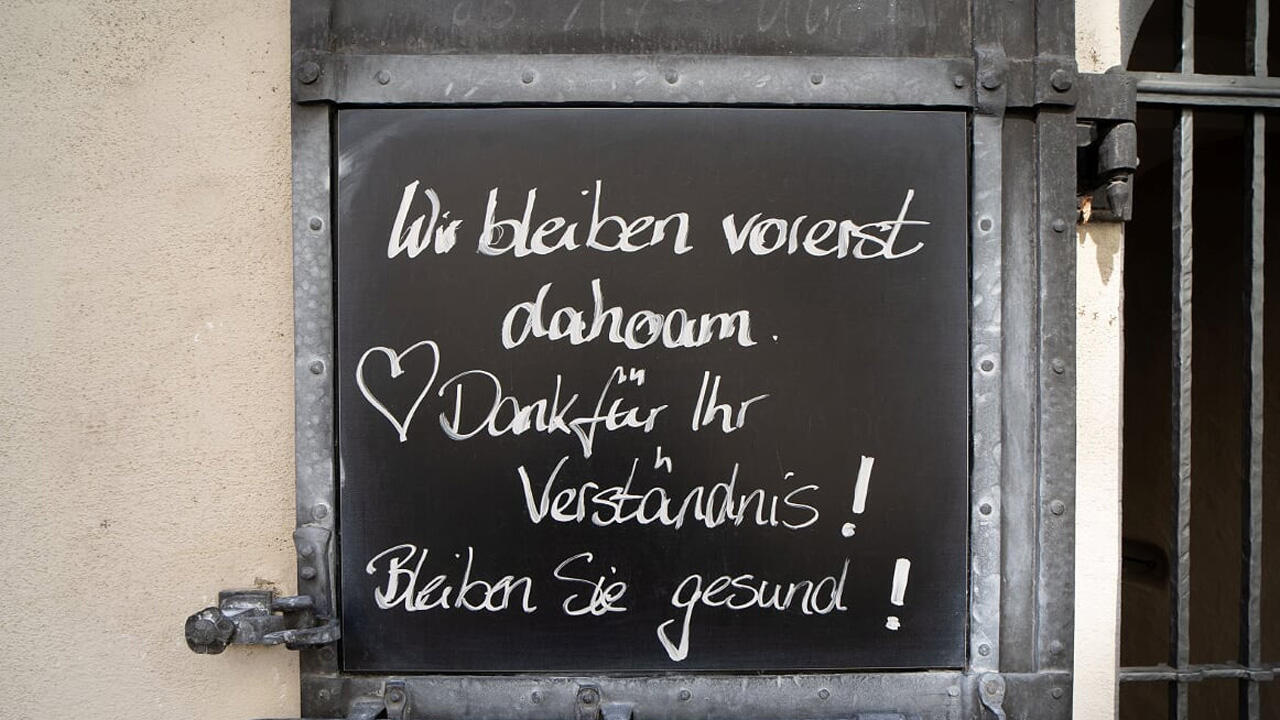 Wir bleiben vorerst
dahoam.
♡ Dank für Ihr
Verständnis!
Bleiben Sie gesund!